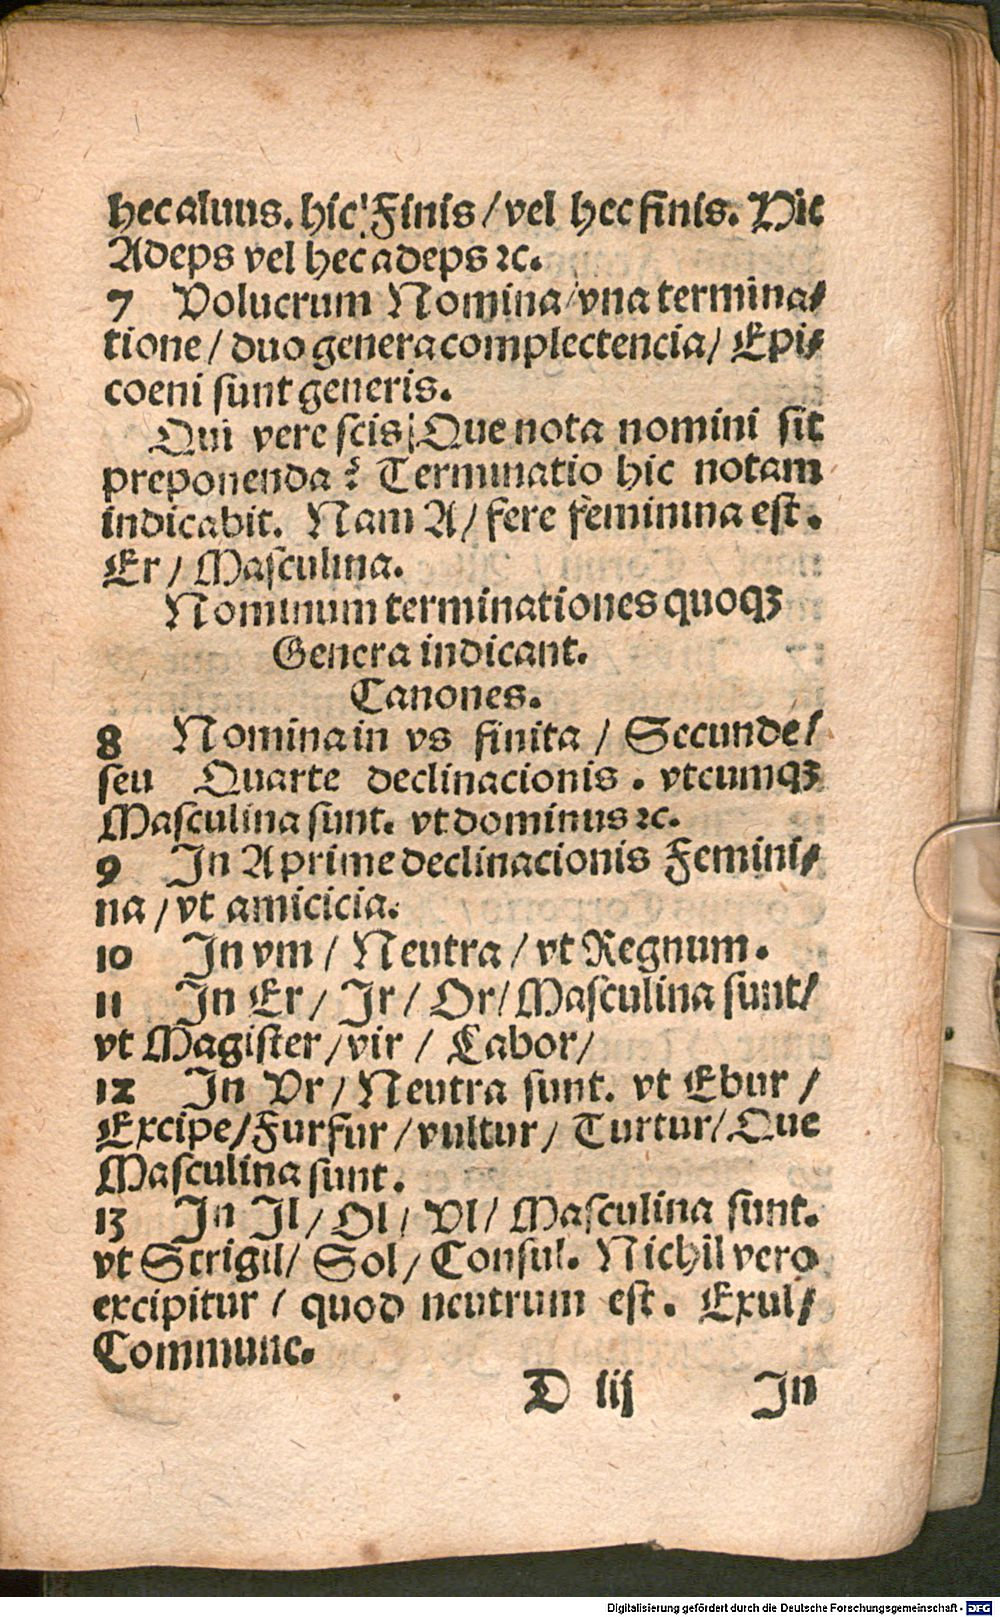 hec aluus. hic Finis / vel hec finis. Hic
Adeps vel hec adeps ⁊c.
7 Volucrum Nomina / vna termina⸗
tione / duo genera complectencia / Epi⸗
coeni sunt generis.
Qui vere scis / Que nota nomini sit
preponenda? Terminatio hic notam
indicabit. Nam A / fere feminina est.
Er / Masculina.
Nominum terminationes quoqꝫ
Genera indicant.
Canones.
8 Nomina in vs finita / Secunde /
seu Quarte declinacionis. vtcumqꝫ
Masculina sunt. vt dominus ⁊c.
9 In A prime declinacionis Femini⸗
na / vt amicicia.
10 In vm / Neutra / vt Regnum.
11 In Er / Ir / Or / Masculina sunt /
vt Magister / vir / Labor /
12 In Vr / Neutra sunt. vt Ebur /
Excipe / Furfur / vultur / Turtur / Que
Masculina sunt.
13 In Il / Ol / Vl / Masculina sunt.
vt Strigil / Sol / Consul. Nichil vero
excipitur / quod neutrum est. Exul /
Commune.
D iij In
Digitalisierung gefördert durch die Deutsche Forschungsgemeinschaft - DFG